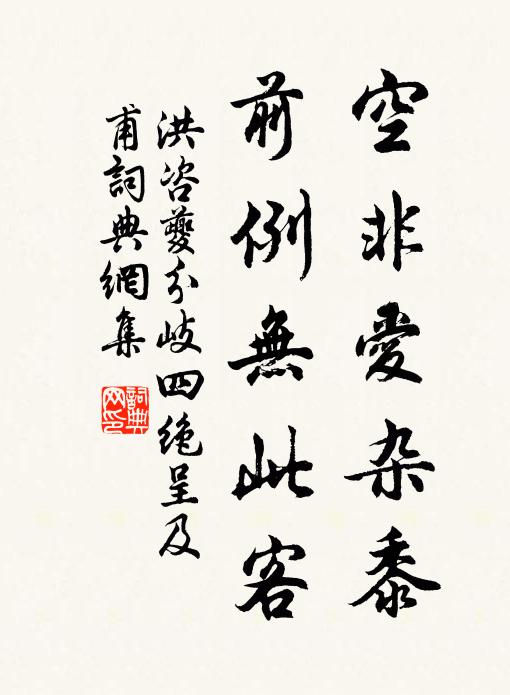 空非愛杂黍
前例無此客
洪咨夔分岐四绝呈及
甫詞典網集
詞典网印